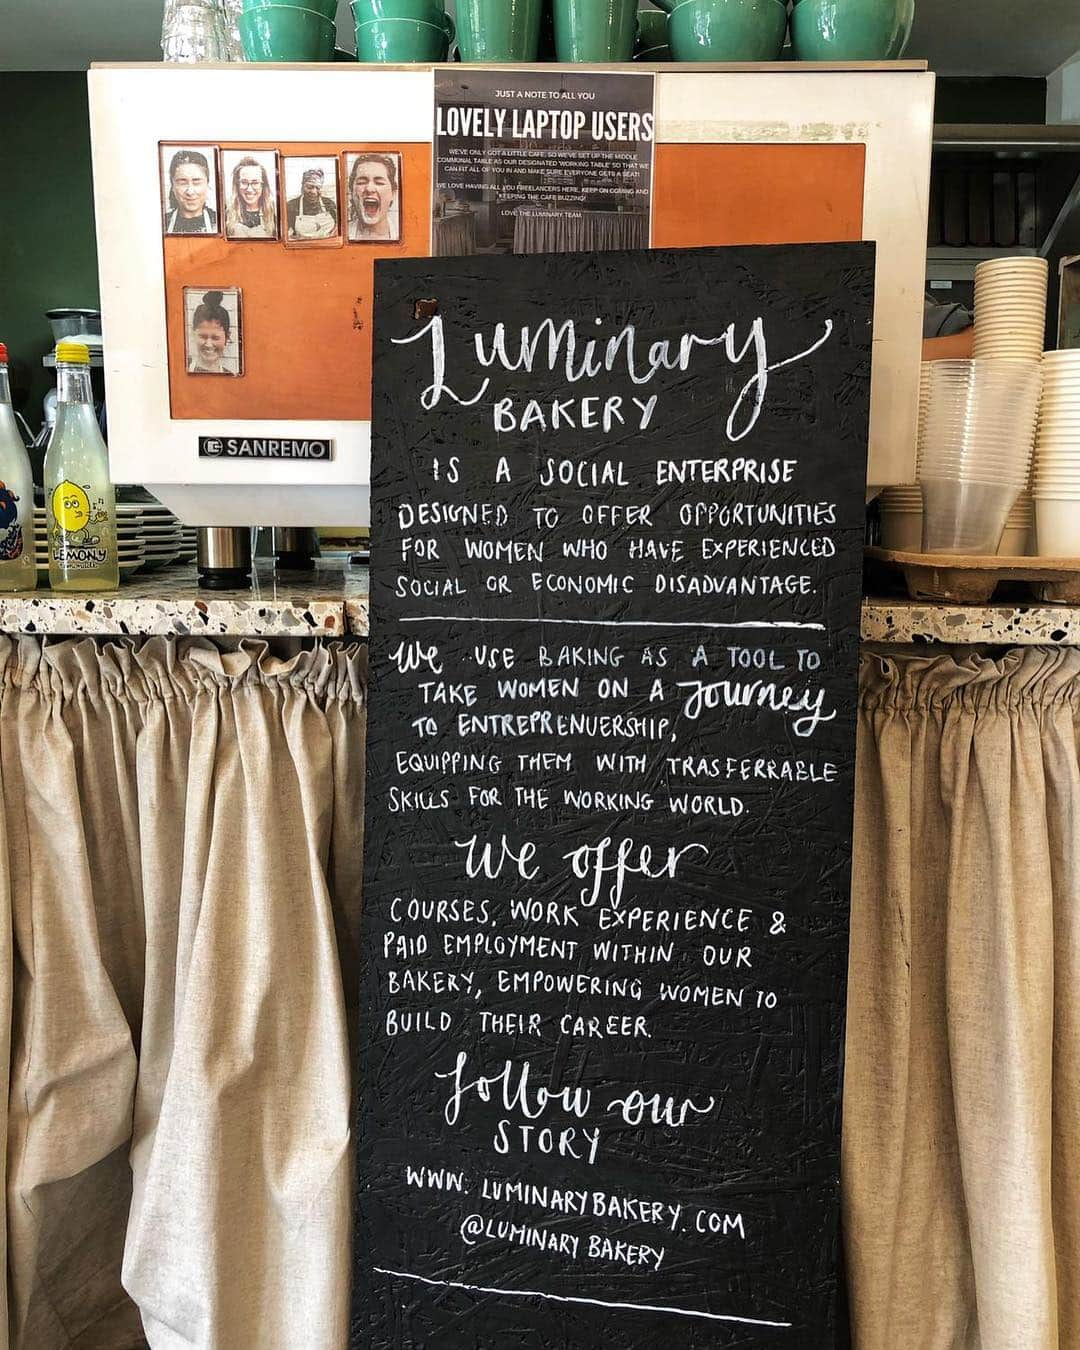 JUST A NOTE TO ALL YOU
LOVELY LAPTOP USERS
WE'VE ONLY GOT A LITTLE CAFE, SO WE'VE SET UP THE MIDDLE
COMMUNAL TABLE AS OUR DESIGNATED 'WORKING TABLE' SO THAT WE
CAN FIT ALL OF YOU IN AND MAKE SURE EVERYONE GETS A SEAT!
WE LOVE HAVING ALL YOU FREELANCERS HERE, KEEP ON COMING AND
KEEPING THE CAFE BUZZING!
LOVE THE LUMINARY TEAM
SANREMO
LEMONY
Luminary
BAKERY
IS A SOCIAL ENTERPRISE
DESIGNED TO OFFER OPPORTUNITIES
FOR WOMEN WHO HAVE EXPERIENCED
SOCIAL OR ECONOMIC DISADVANTAGE.
We USE BAKING AS A TOOL TO
TAKE WOMEN ON A Journey
TO ENTREPRENUERSHIP,
EQUIPPING THEM WITH TRASFERRABLE
SKILLS FOR THE WORKING WORLD.
We offer
COURSES, WORK EXPERIENCE &
PAID EMPLOYMENT WITHIN OUR
BAKERY, EMPOWERING WOMEN TO
BUILD THEIR CAREER.
follow our
STORY
WWW.LUMINARYBAKERY.COM
@LUMINARYBAKERY